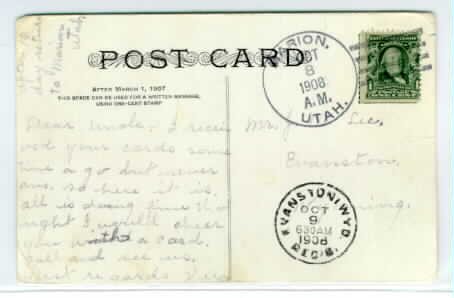 day return
to Marion
Utah.
POST CARD
AFTER MARCH 1, 1907
THIS SPACE CAN BE USED FOR A WRITTEN MESSAGE,
USING ONE-CENT STAMP
MARION,
OCT
8
1908
A.M.
UTAH.
Dear Uncle. I recei
ved your cards some
time a go but never
ans. so here it is.
all is doing fine tho
ught I would cheer
you with a card.
call and see us.
best regards
Mr. J. Lee.
Evanston.
Wyoming.
EVANSTON, WYO.
OCT
9
630AM
1908
REC'D.